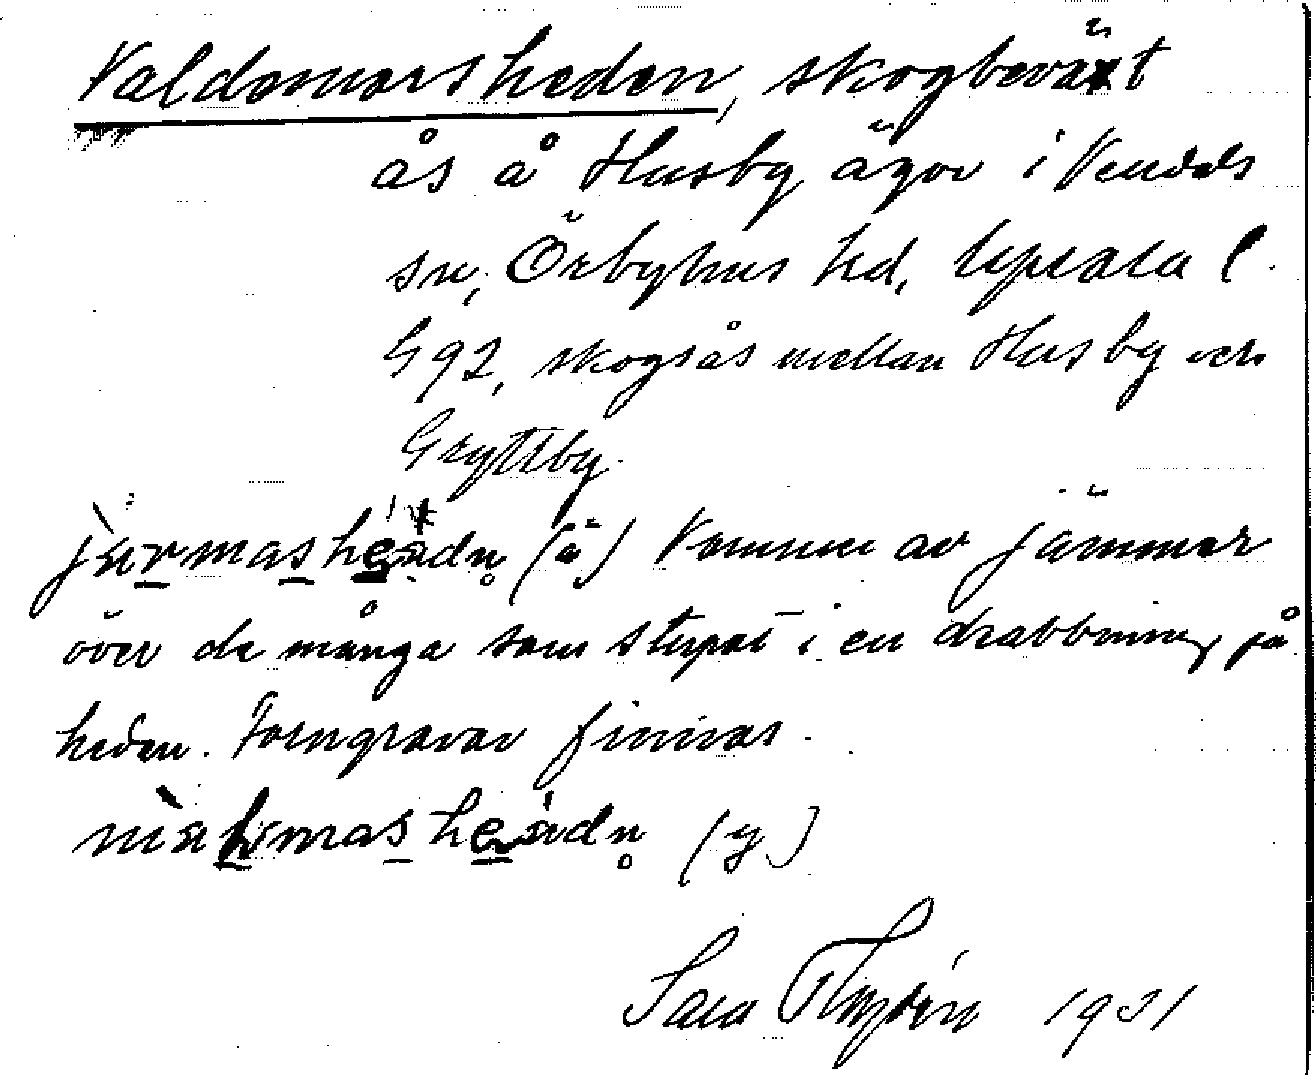 Valdomarsheden, skogbeväxt
ås å Husby ägor i Vendels
sn, Örbyhus hd, Upsala l.
G92, skogsås mellan Husby och
Gryttby.
(ä) Kommer av jämmer
över de många som stupat i en drabbning på
heden. Forngravar finnas.
(y)
Sara 1931